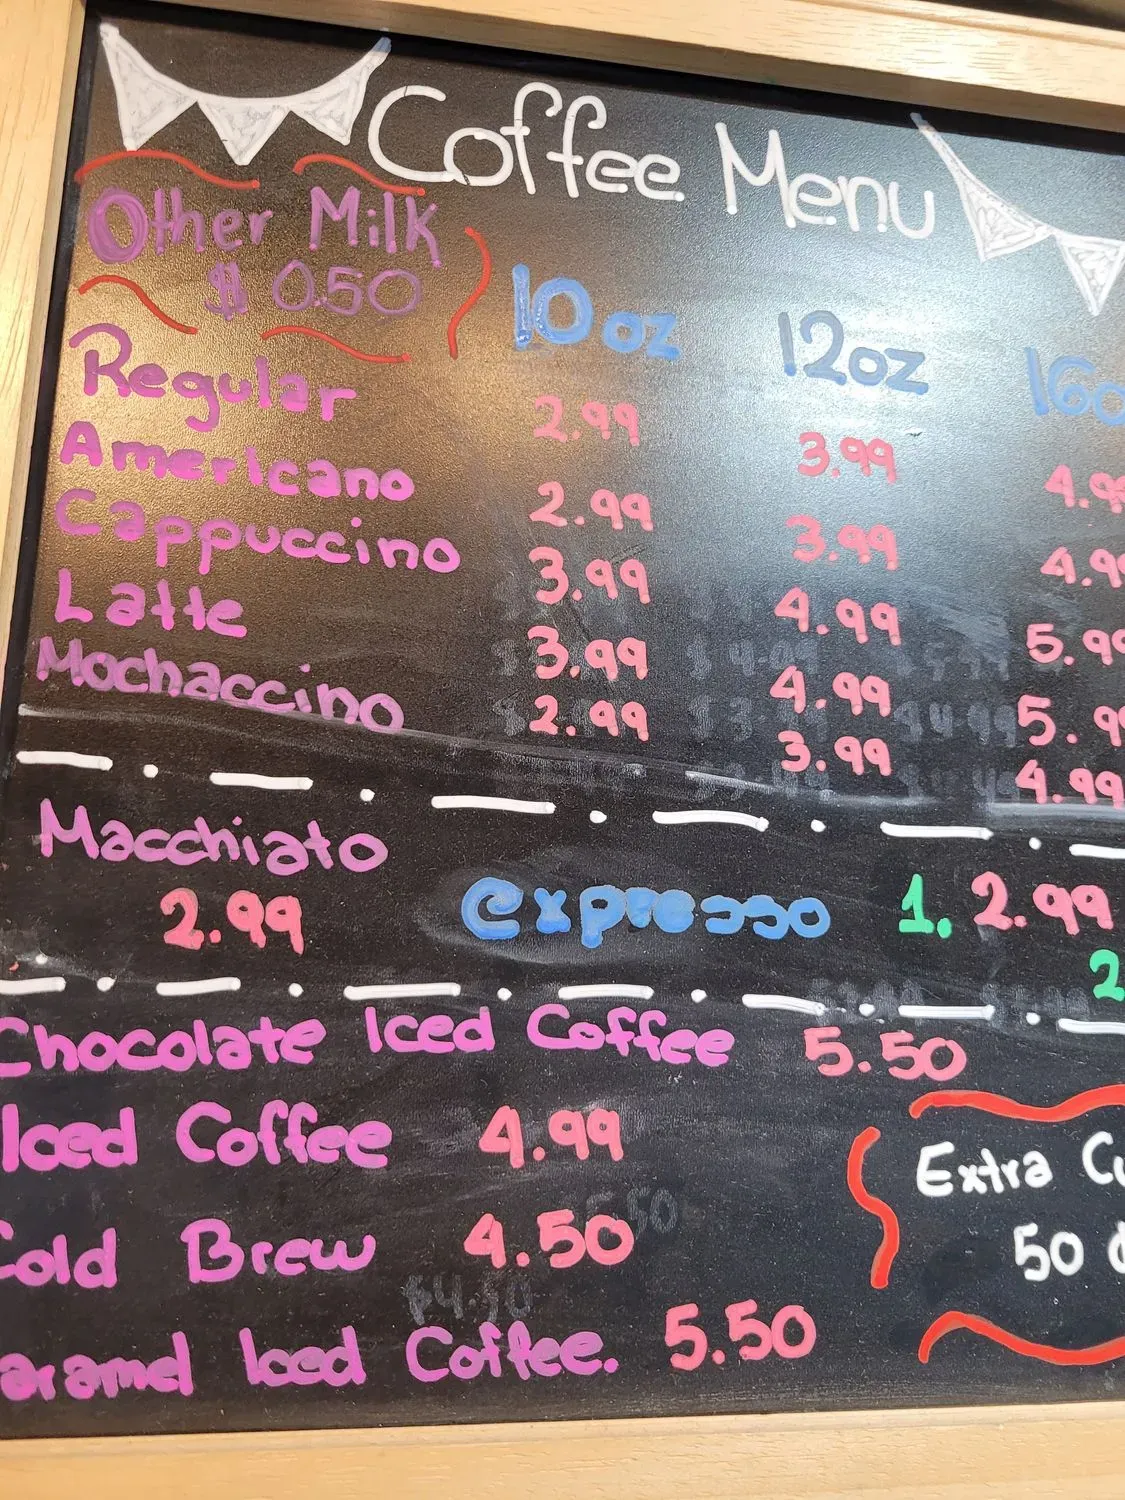 Coffee Menu
Other Milk
$ 0.50
10 oz 12oz
Regular 2.99 3.99
Americano 2.99 3.99
Cappuccino 3.99 4.99
Latte 3.99 4.99
Mochaccino 2.99 3.99 4.99
Macchiato
2.99
expresso 1. 2.99
2
Chocolate Iced Coffee 5.50
Iced Coffee 4.99
Cold Brew 4.50
Iced Coffee. 5.50
Extra
50